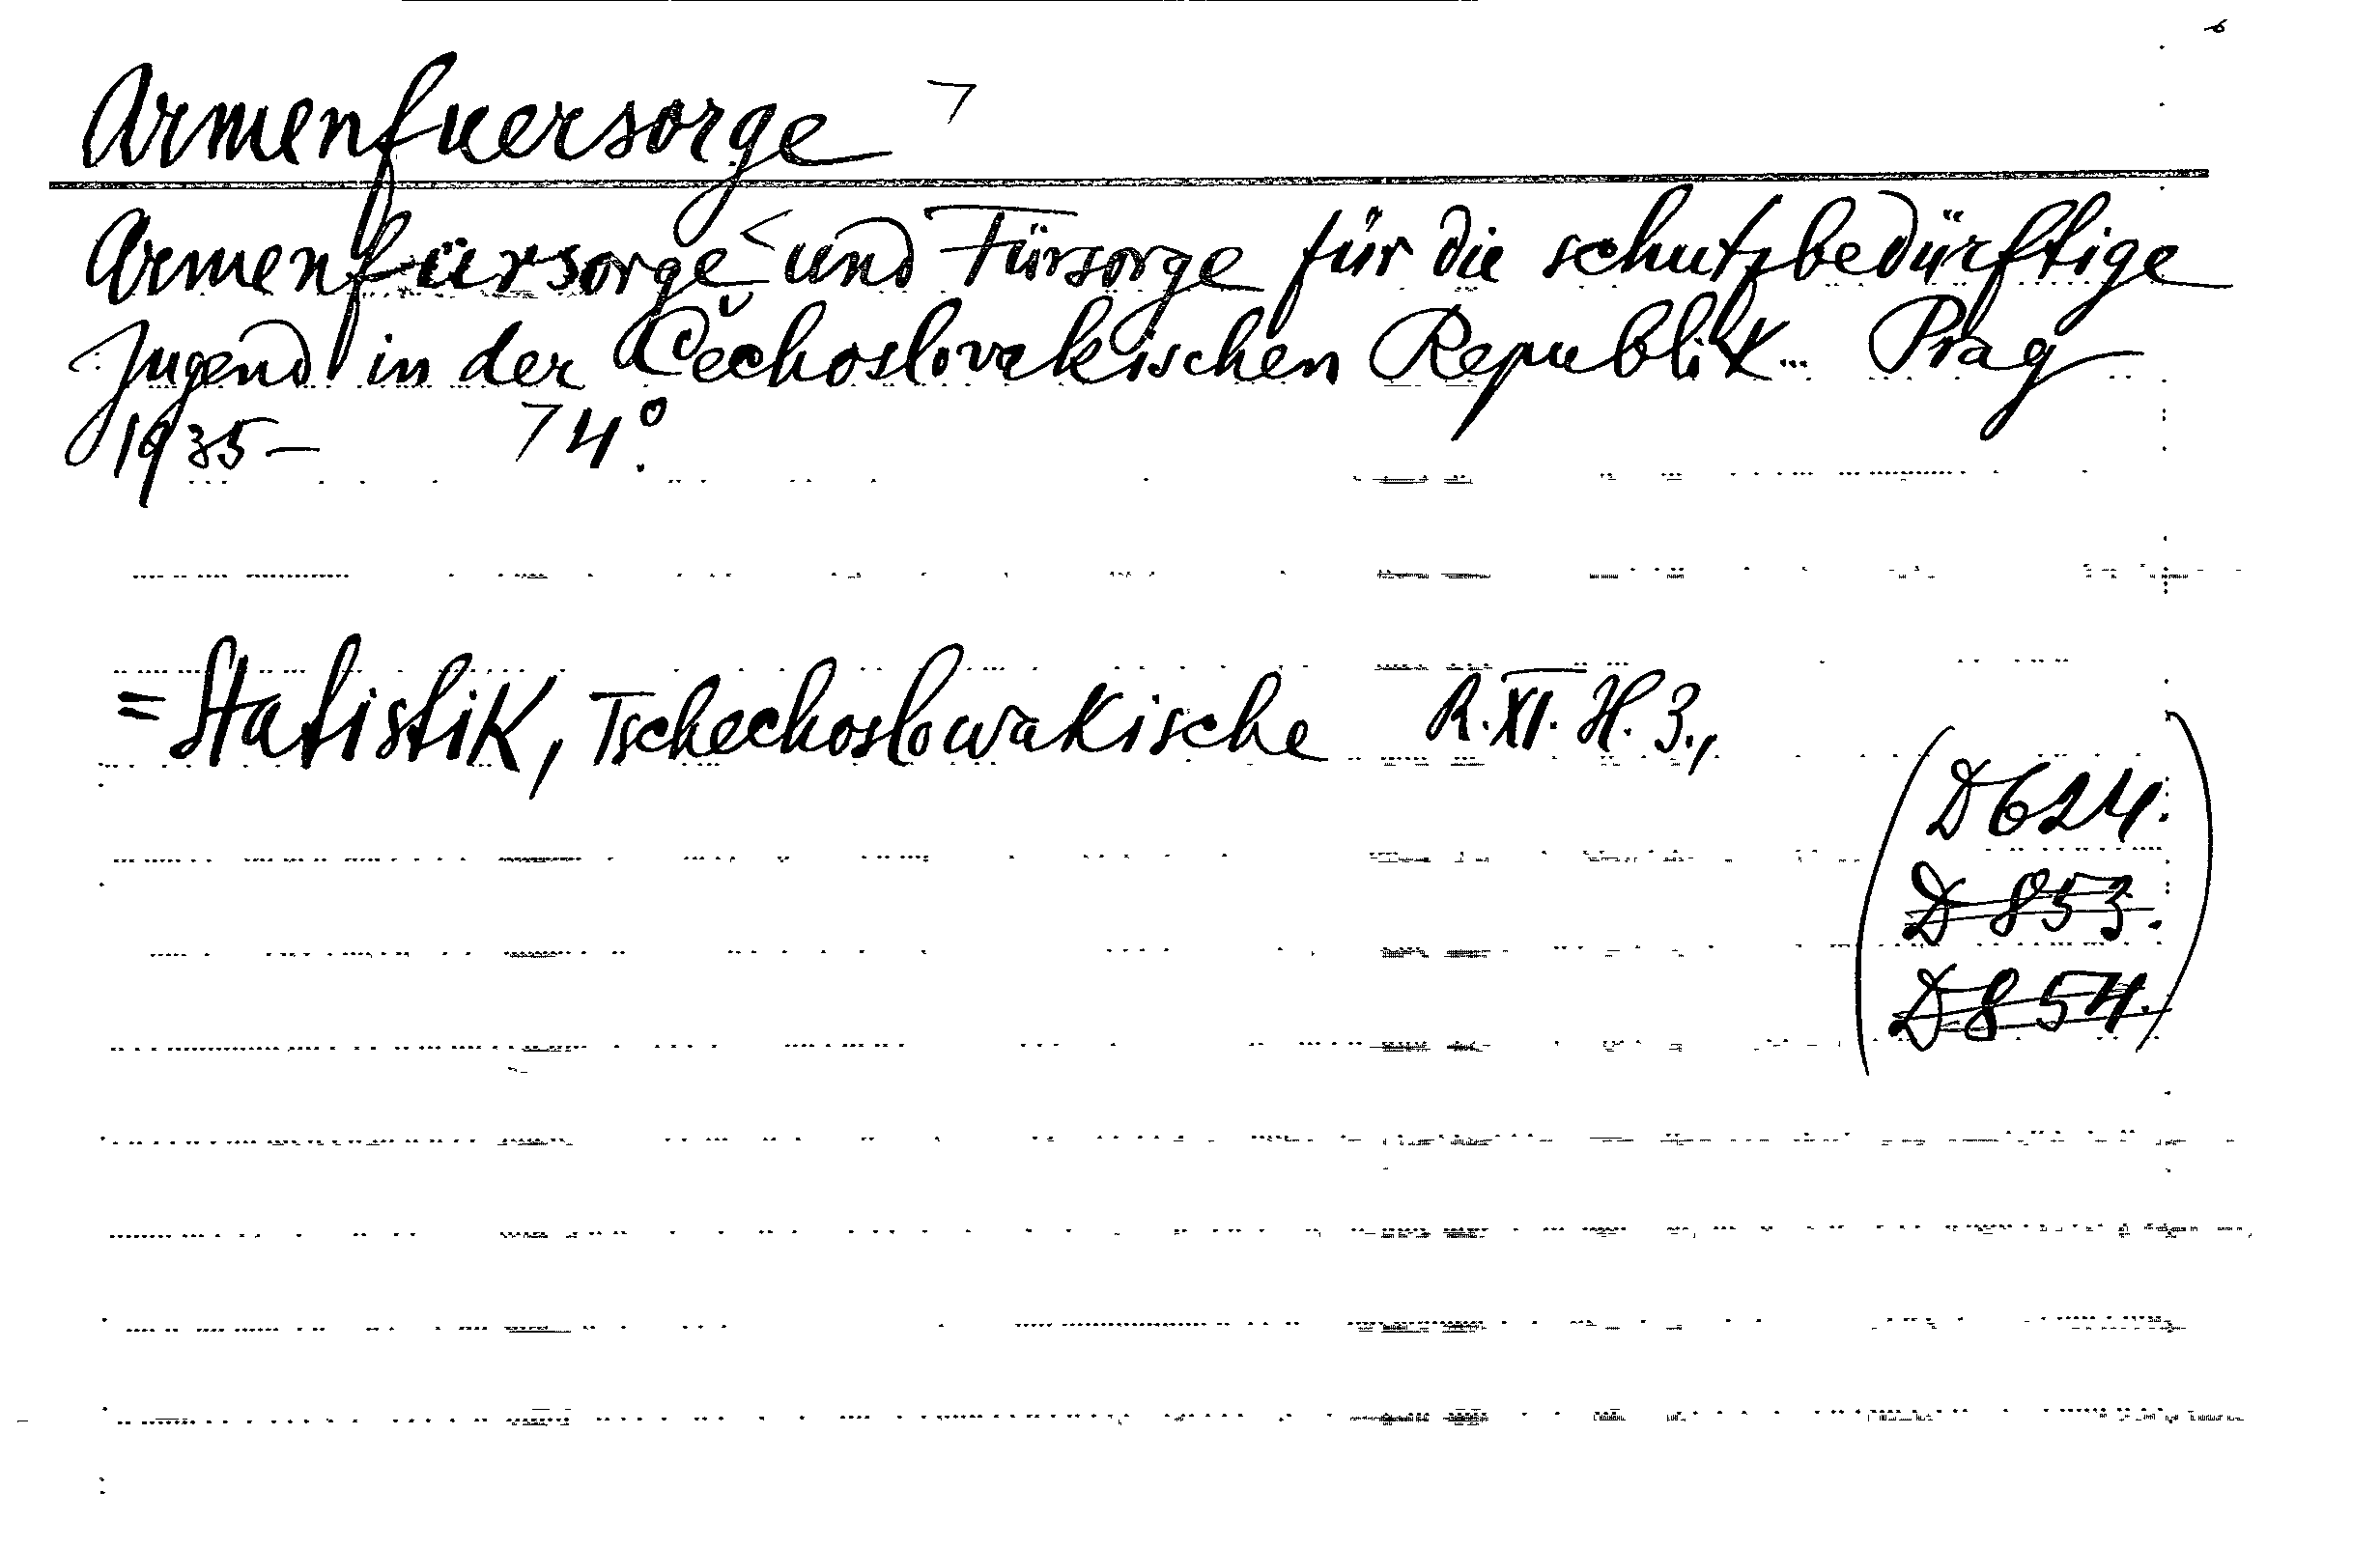 Armenfuersorge
Armenfürsorge und Fürsorge für die schutzbedürftige
Jugend in der Čechoslovakischen Republik... Prag
1935- 4°.
= Statistik, Tschechoslowakische R. XI. H. 3.,
D 624.
D 853.
D 854.